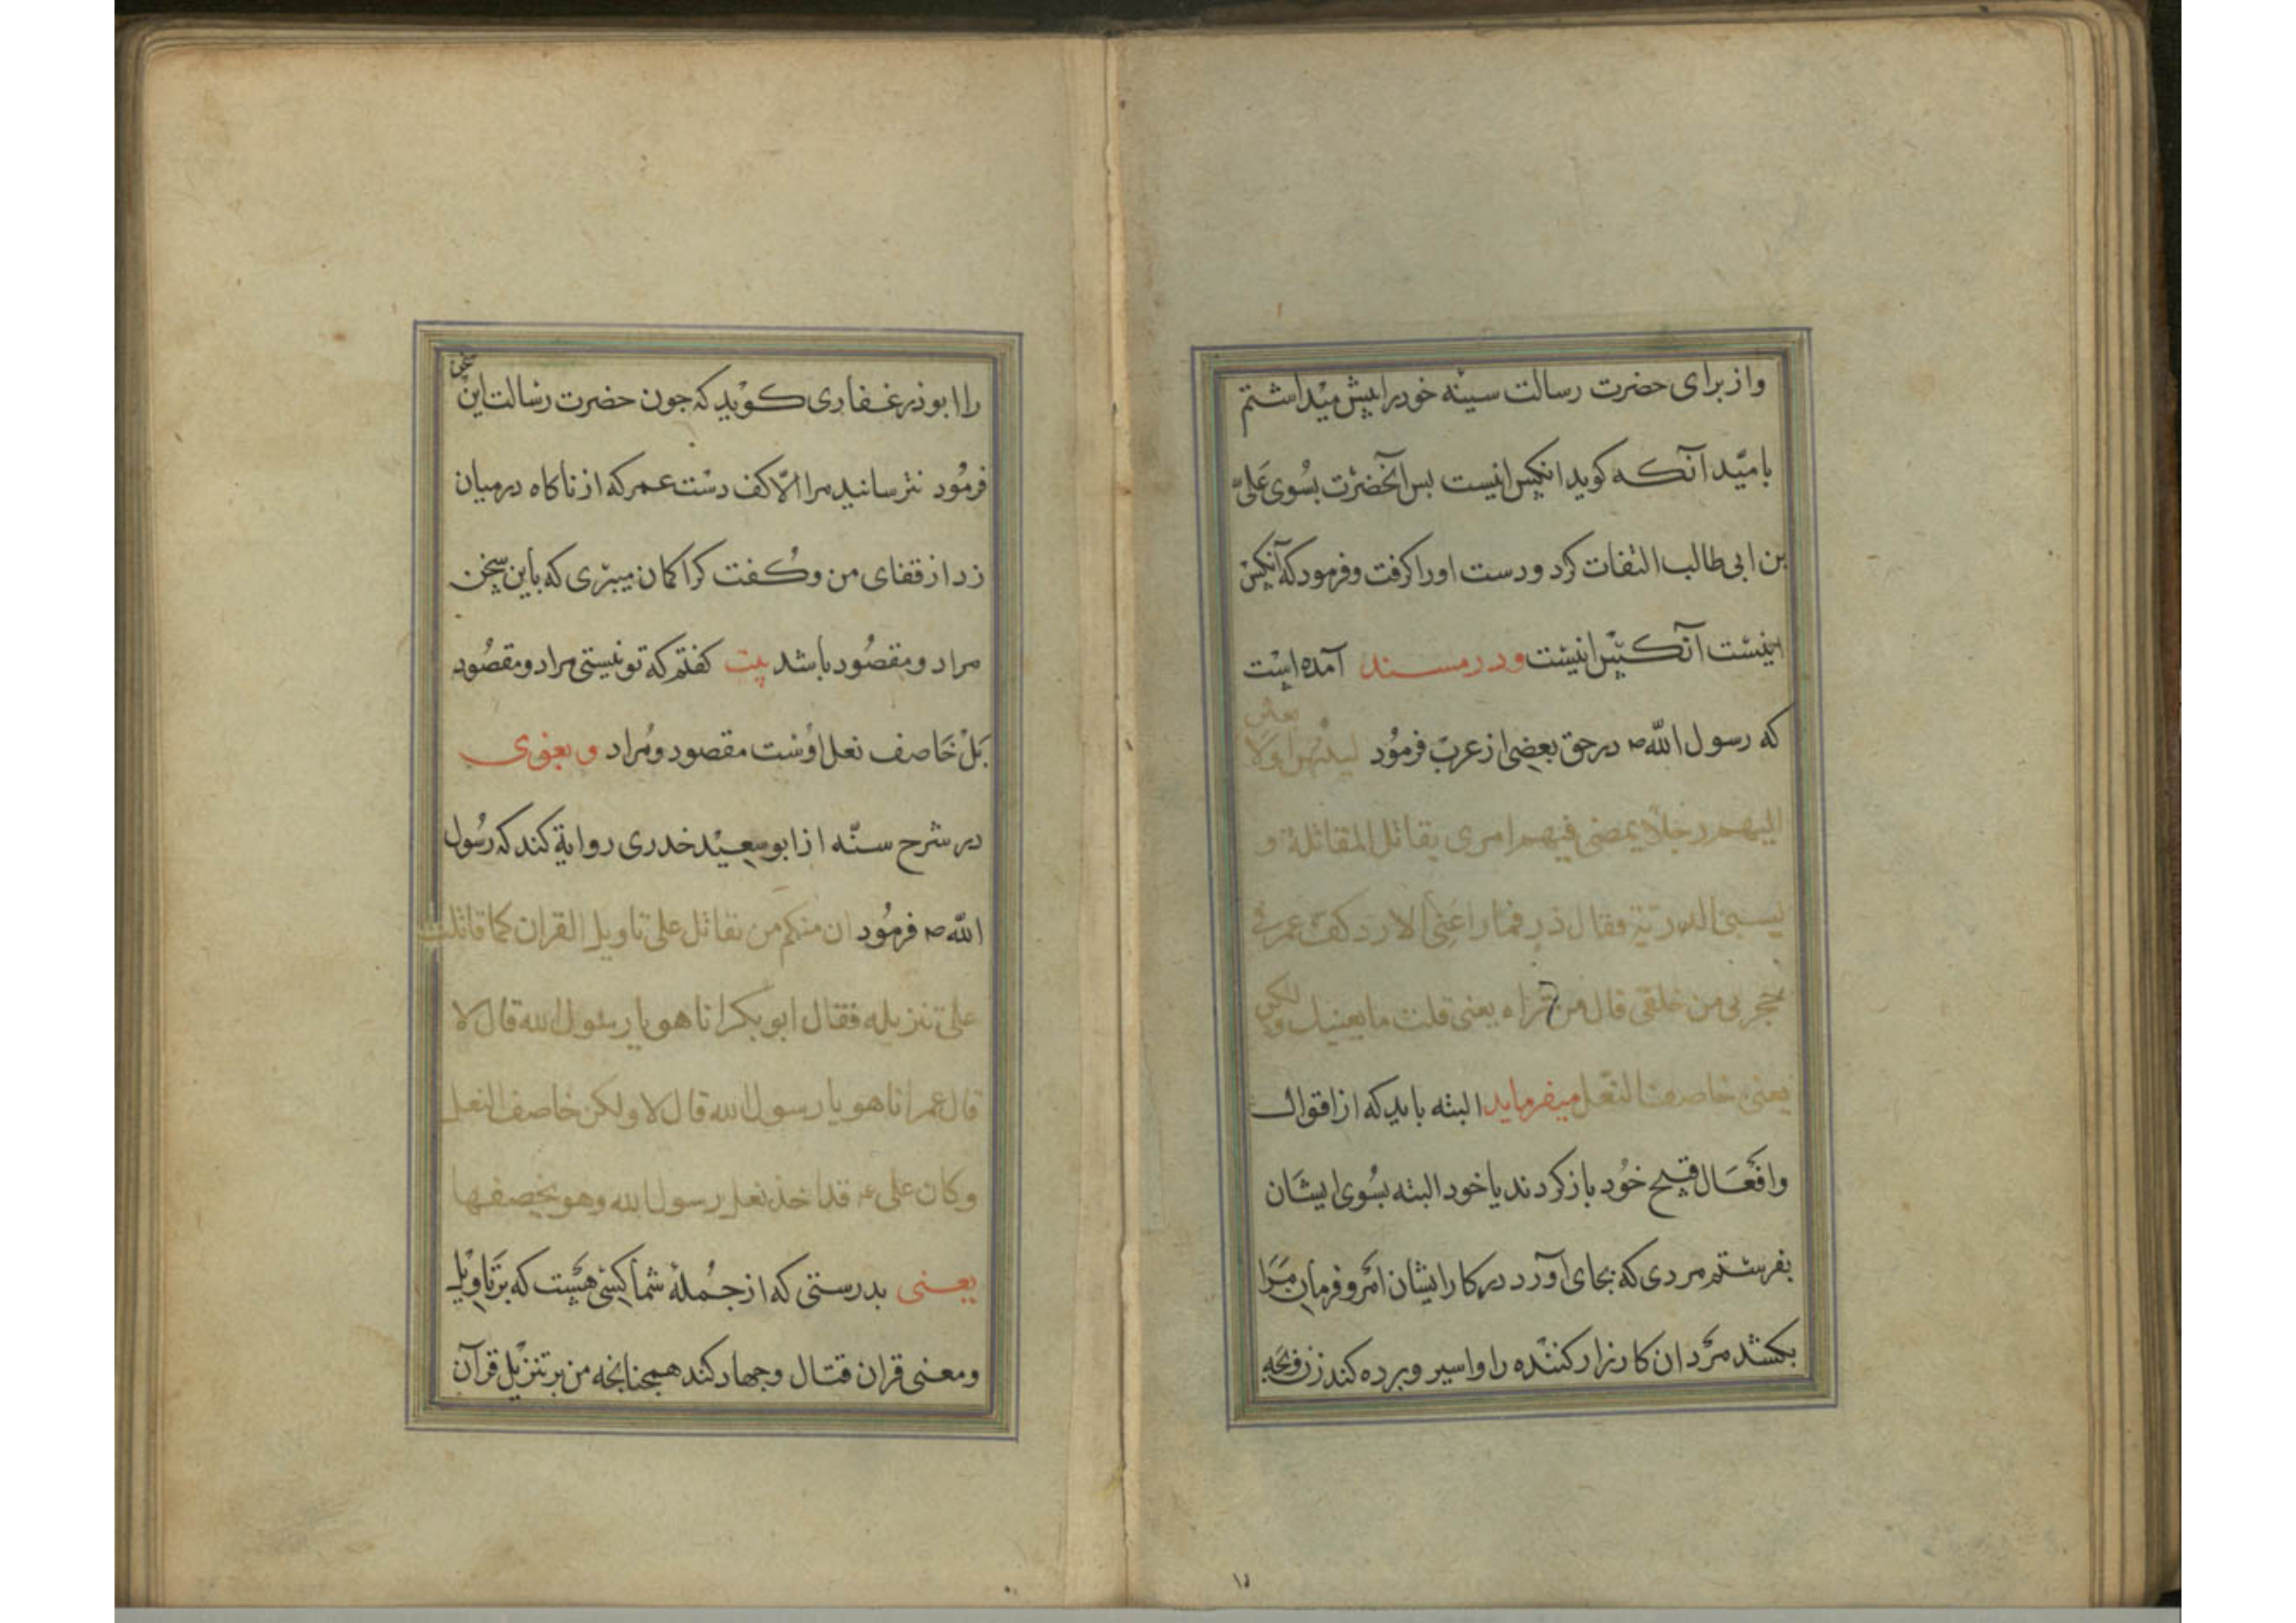 واز برای حضرت رسالت سینه خود را پیش میداشتم
بامیّد آنکه کوید انکس انیست بس آنحضرت بسوی علی
بن ابی طالب التفات کرد و دست او را کرفت و فرمود که آنکس
اینست آنکس انیست و در مسند آمده است
که رسول الله ص در حق بعضی از عرب فرمود لینتهن اولا بعثن
الیهم رجلا یمضی فیهم امری یقاتل المقاتلة و
لیسبی الذریة فقال ذر فما راعنی الا رد کف عمر فی
حجزی من خلفی قال من تراه یعنی قلت ما یعنیک ولکن
یعنی خاصف النعل میفرماید البته باید که از اقوال
وافعال قبیح خود باز کردند یا خود البته بسوی ایشان
بفرستم مردی که بجای آورد در کار ایشان امر و فرمان مرا
بکشد مردان کارزار کننده را واسیر و برده کند زن و بچه
را ابوذر غفاری کوید که جون حضرت رسالت این سخن
فرمود نترسانید مرا الّا کف دست عمر که از ناکاه در میان
زد از قفای من وکفت کرا کمان میبری که باین سخن
مراد و مقصود باشد بیت کفتم که تو نیستی مراد و مقصود
بل خاصف نعل اوست مقصود و مراد و بغوی
در شرح سنّه از ابوسعید خدری روایة کند که رسول
الله ص فرمود ان منکم من یقاتل علی تاویل القران کما قاتلت
علی تنزیله فقال ابوبکر انا هو یا رسول الله قال لا
قال عمر انا هو یا رسول الله قال لا ولکن خاصف النعل
وکان علی ع قد اخذ نعل رسول الله وهو یخصفها
یعنی بدرستی که از جملهٔ شما کسی هست که بر تاویل
ومعنی قران قتال وجهاد کند همجنانجه من بر تنزیل قرآن